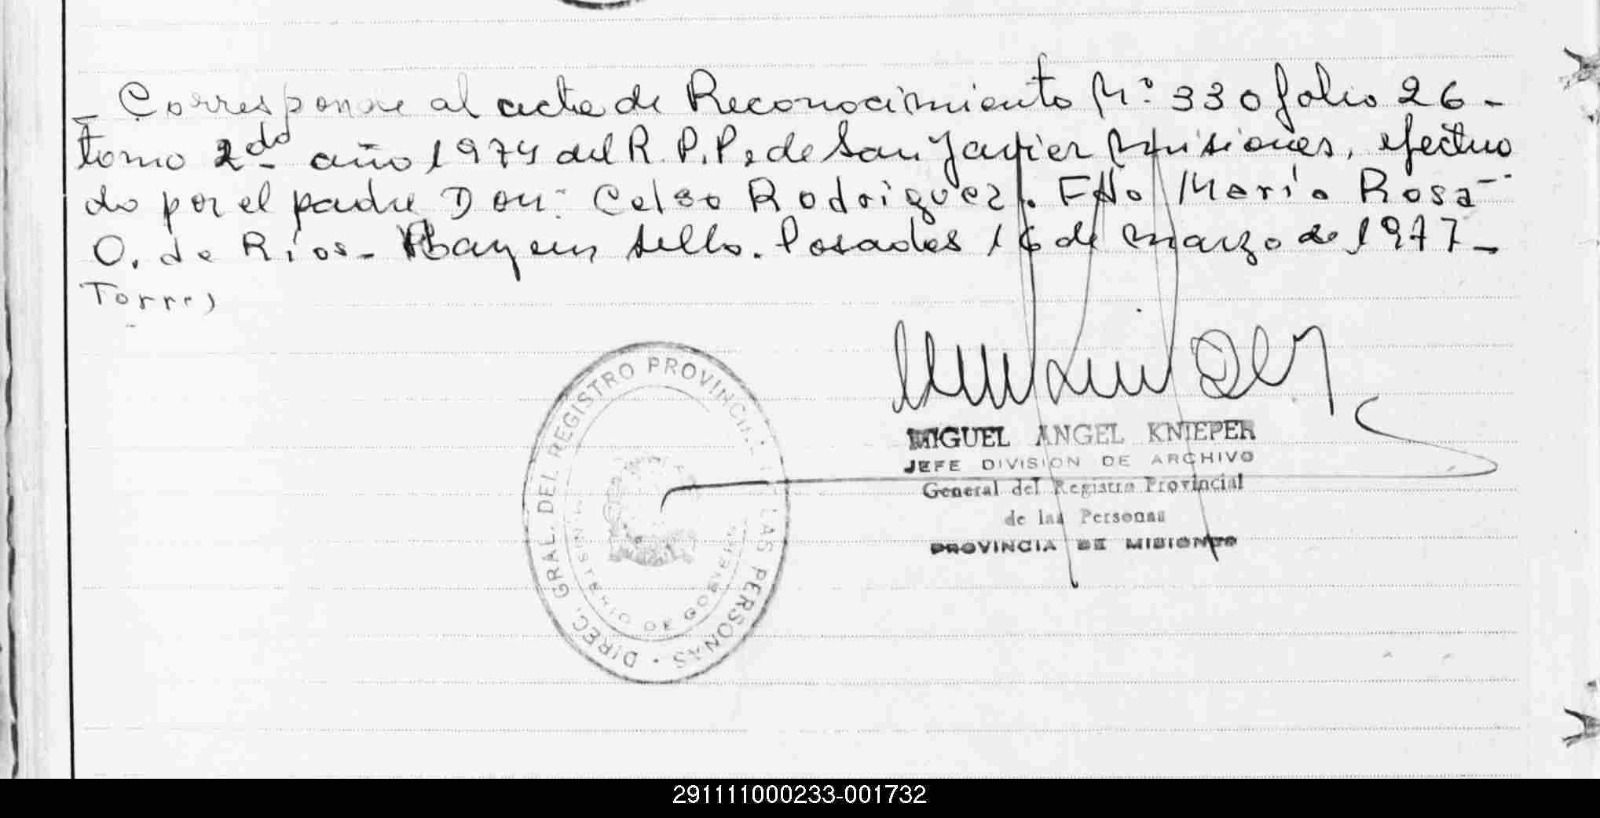 _ Corresponde al acta de Reconocimiento Nº 330 folio 26 -
tomo 2do año 1974 del R. P. P. de San Javier Misiones, efectua
do por el padre Don: Celso Rodriguez. Fdo María Rosa
O. de Ríos - Hay un sello. Posadas 16 de marzo de 1977 -
Torres
DIREC. GRAL. DEL REGISTRO PROVINCIAL DE LAS PERSONAS
MINISTERIO DE GOBIERNO
MIGUEL ANGEL KNIEPER
JEFE DIVISION DE ARCHIVO
General del Registro Provincial
de las Personas
PROVINCIA DE MISIONES
291111000233-001732